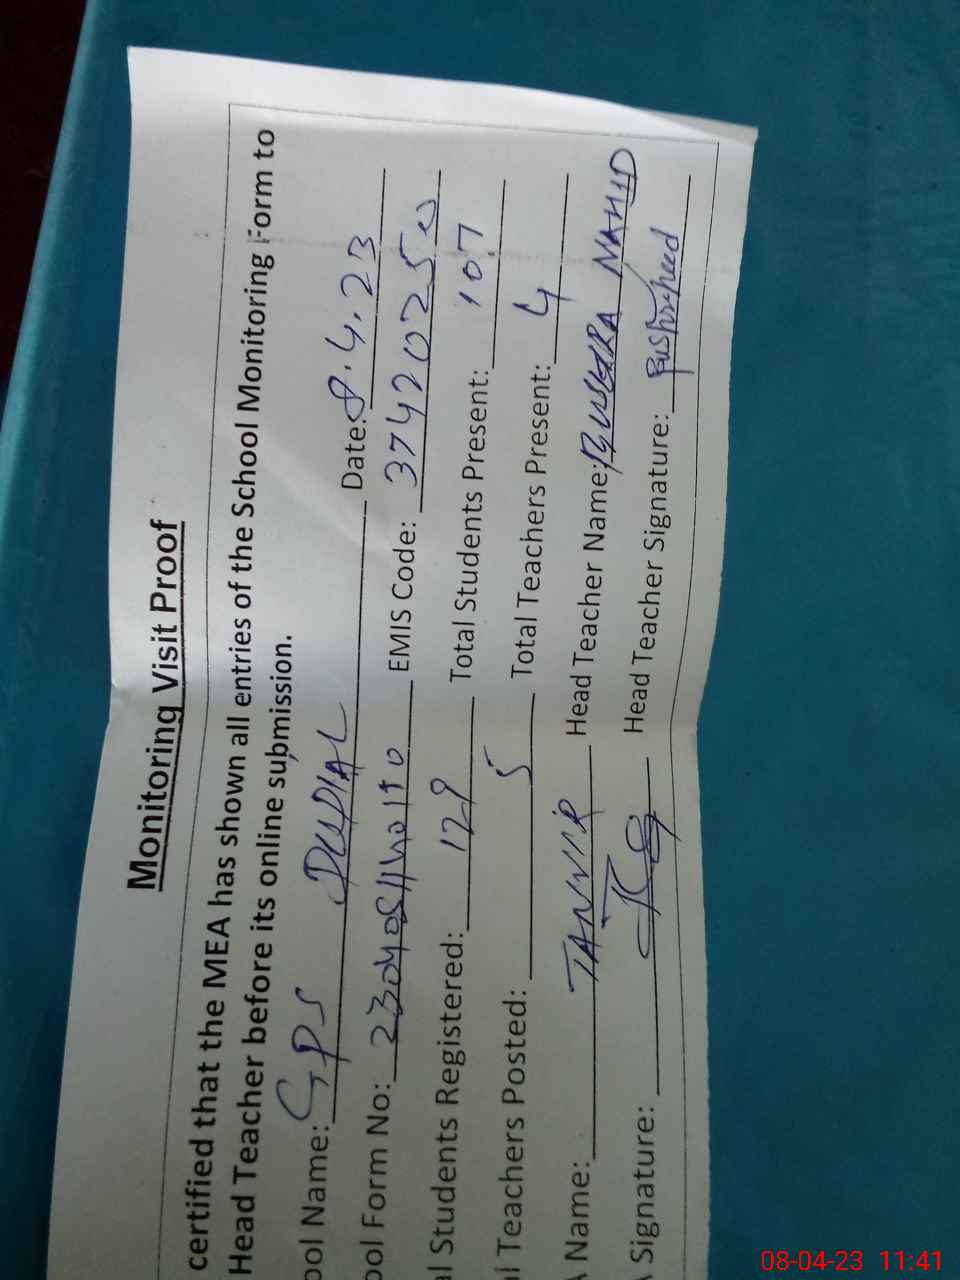 Monitoring Visit Proof
certified that the MEA has shown all entries of the School Monitoring Form to
Head Teacher before its online submission.
ool Name: GPS Date: 8.4.23
ool Form No: EMIS Code: 37420250
al Students Registered: 129 Total Students Present: 107
al Teachers Posted: 5 Total Teachers Present: 4
A Name: TANVIR Head Teacher Name: BUSHRA NAHID
A Signature: Head Teacher Signature:
08-04-23 11:41